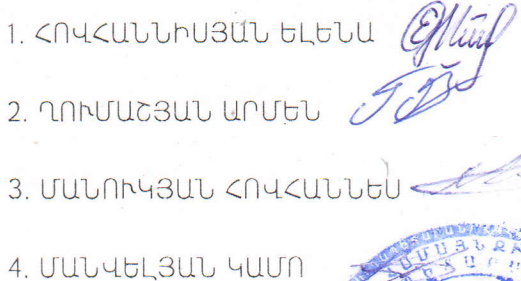 1. ՀՈՎՀԱՆՆԻՍՅԱՆ ԵԼԵՆԱ
2. ՂՈՒՄԱՇՅԱՆ ԱՐՄԵՆ
3. ՄԱՆՈՒԿՅԱՆ ՀՈՎՀԱՆՆԵՍ
4. ՄԱՆՎԵԼՅԱՆ ԿԱՄՈ